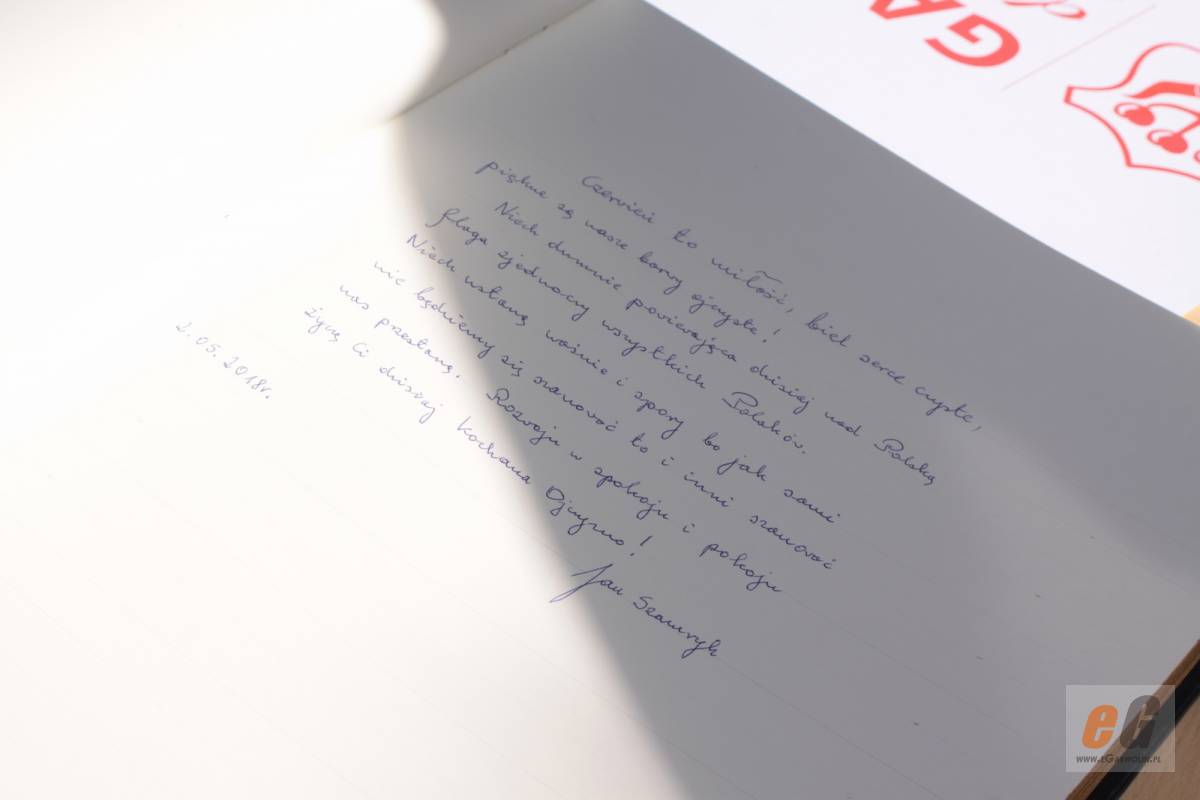 Czerwień to miłość, biel serce czyste,
piękne są nasze barwy ojczyste!
Niech dumnie powiewająca dzisiaj nad Polską
flaga zjednoczy wszystkich Polaków.
Niech ustaną waśnie i spory bo jak sami
nie będziemy się szanować to i inni szanować
nas przestaną. Rozwoju w spokoju i pokoju
życzę Ci dzisiaj kochana Ojczyzno!
Jan
2.05.2018r.
GA
eG
www.eGarwolin.pl